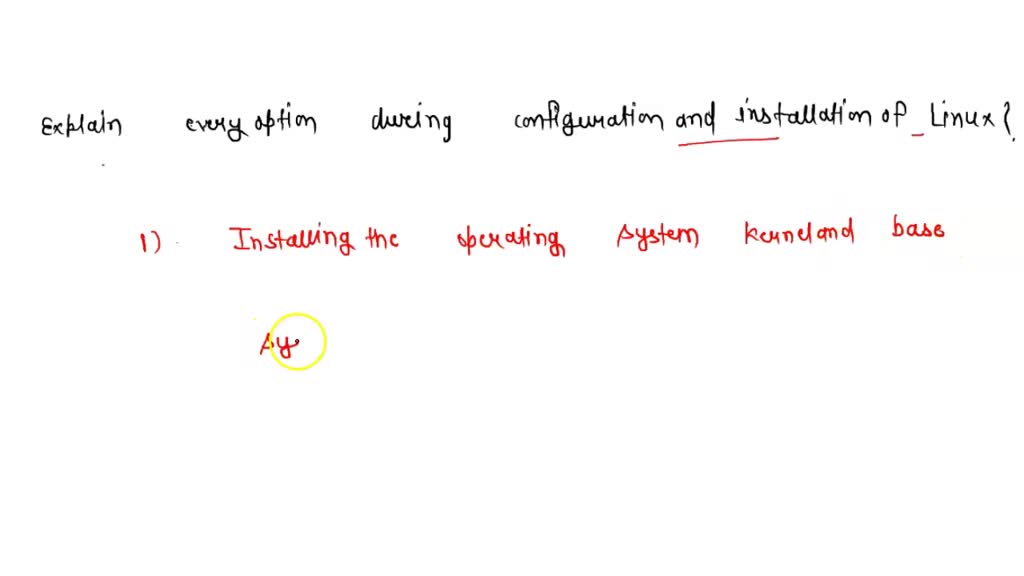 Explain every option during configuration and installation of Linux?
1) Installing the operating system kernel and base
sy